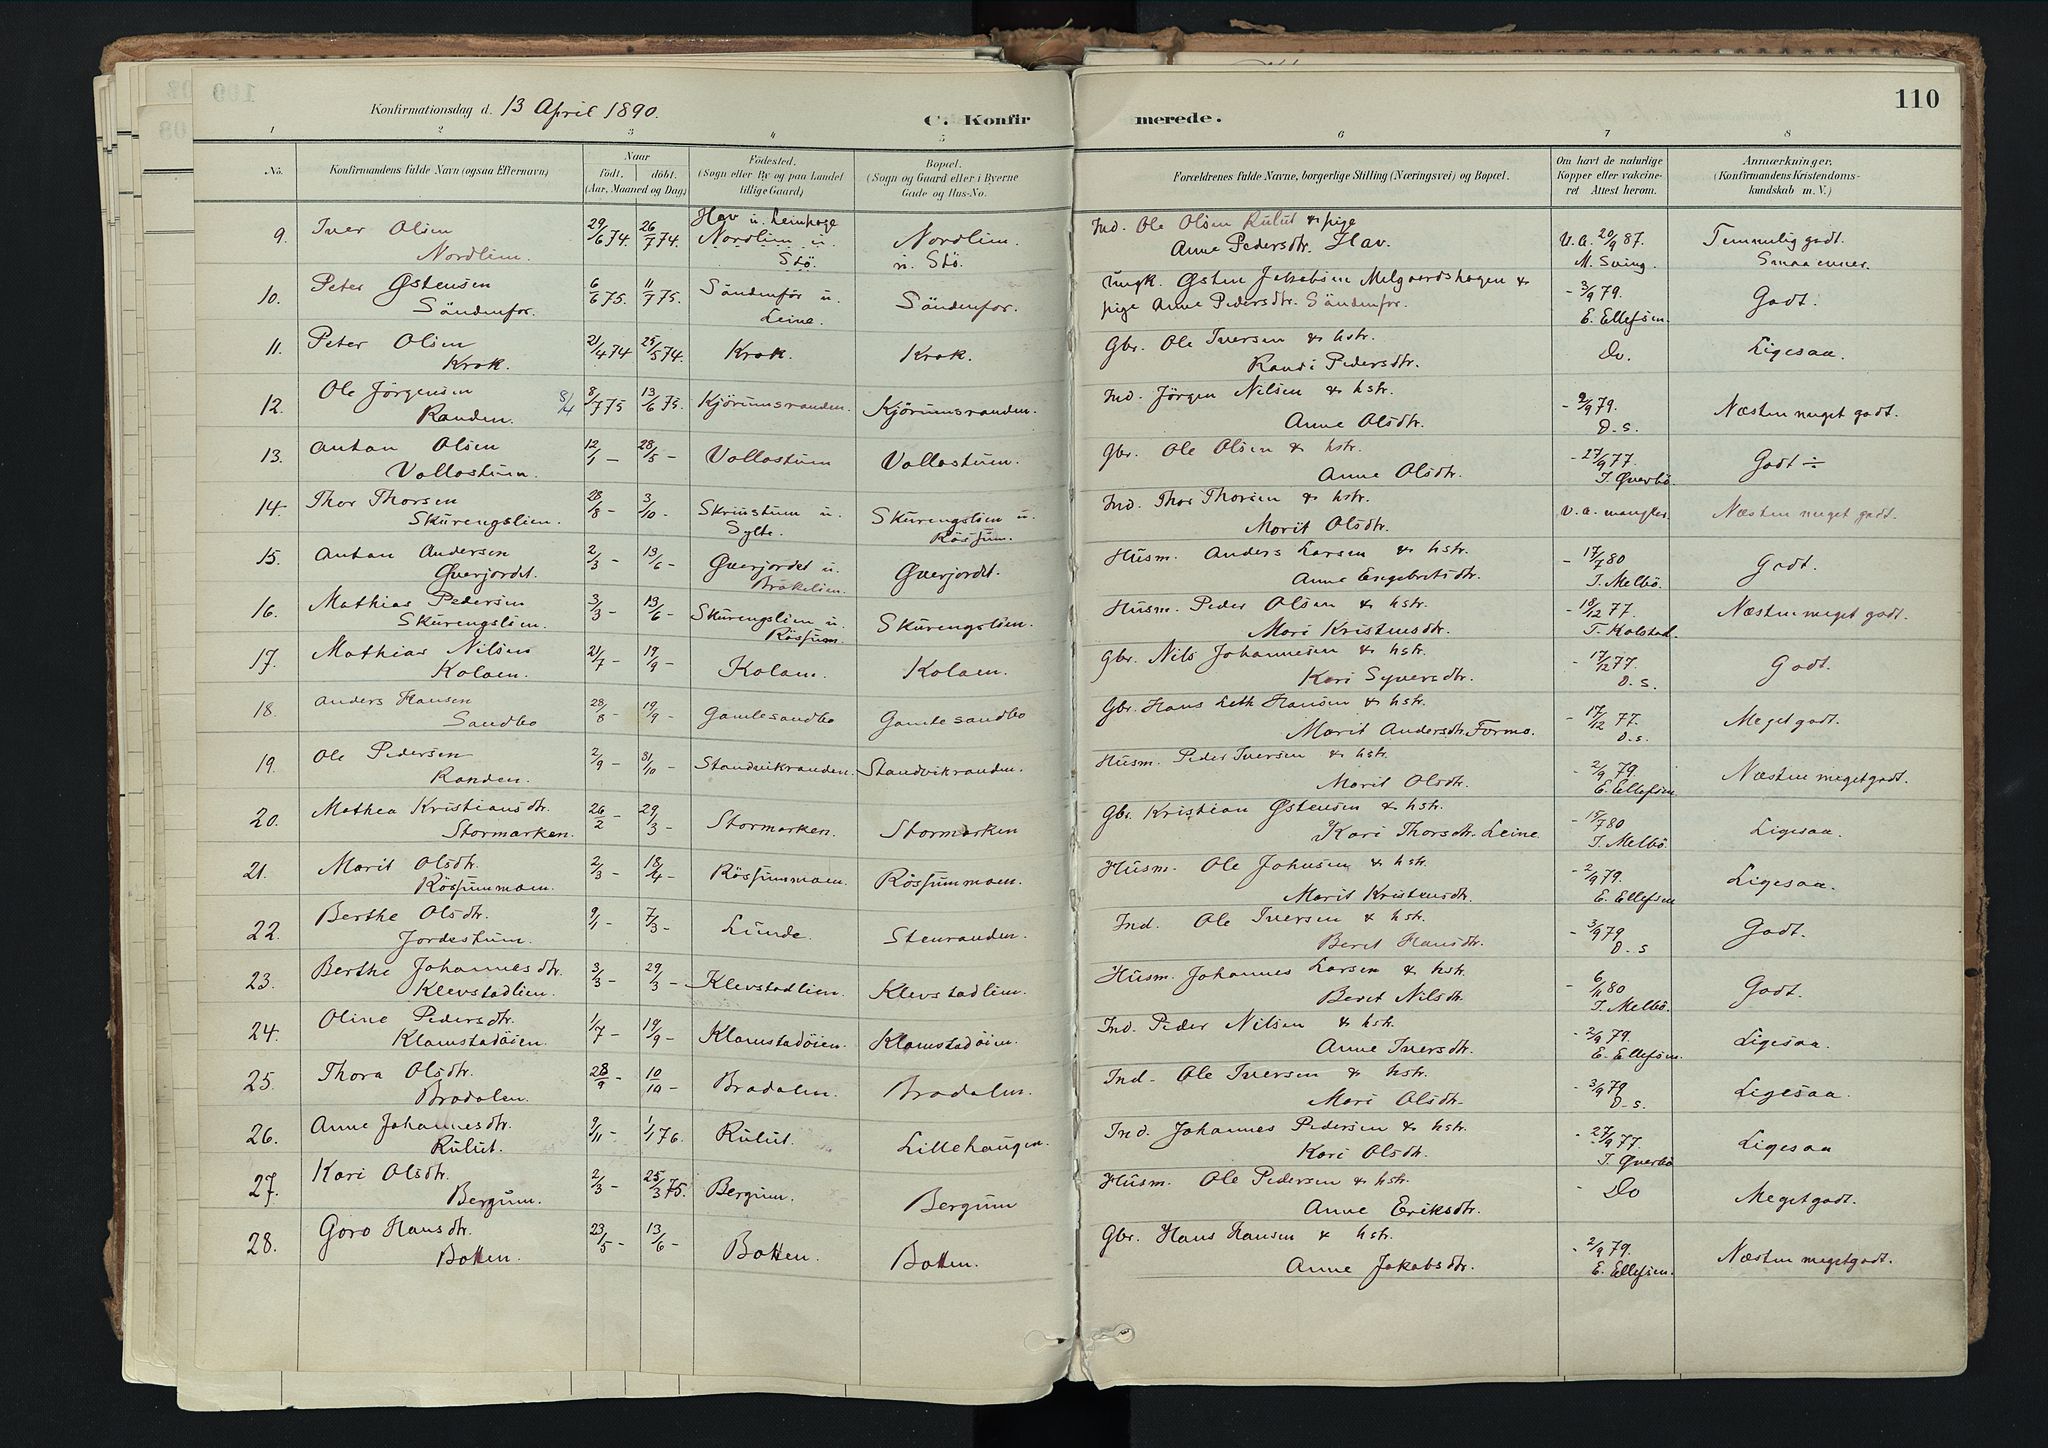 110
Konfirmationsdag d. 13 April 1890.
C. Konfirmerede.
1 2 3 4 5 6 7 8
No. Konfirmandens fulde Navn (ogsaa Efternavn) Naar født. døbt. (Aar, Maaned og Dag) Fødested. (Sogn eller By og paa Landet tillige Gaard) Bopæl. (Sogn og Gaard eller i Byerne Gade og Hus-No. Forældrenes fulde Navne, borgerlige Stilling (Næringsvei) og Bopæl. Om havt de naturlige Kopper eller vakcineret Attest herom. Anmærkninger, (Konfirmandens Kristendomskundskab m. V.)
9. Iver Olsen 29/6 74. 26/7 74. Hav u. Leinhage Ind. Ole Olsen Rulut & pige
Nordlien. Nordlien u. Stö. Nordlien. u. Stö. Anne Pedersdtr. Hav. V.A. 20/9 87. M. Sving. Temmelig godt. Smaa evner.
10. Peter Østensen 6/6 75. 11/7 75. Söndenfor u. Ungk. Østen Jakobsen Melgaardshagen &
Söndenfor. Leine. Söndenfor. pige Anne Pedersdtr. Söndenfor. - 3/9 79. E. Ellefsen. Godt.
11. Peter Olsen 21/4 74 25/5 74. Krok. Krok. Gbr. Ole Iversen & hstr.
Krok. Randi Pedersdtr. Do. Ligesaa.
12. Ole Jörgensen 8/4 8/7 75 13/6 75. Kjörumsranden. Kjörumsranden. Ind. Jörgen Nilsen & hstr.
Randen. Anne Olsdtr. - 2/9 79. D.s. Næsten meget godt.
13. Anton Olsen 12/1 - 28/5 - Vollastuen Vollastuen. Gbr. Ole Olsen & hstr.
Vollastuen. Anne Olsdtr. - 27/9 77. T. Øverbö. Godt ÷
14. Thor Thorsen 28/8 - 3/10 - Skriustuen u. Sylte. Skurengslien u. Rössum. Ind. Thor Thorsen & hstr.
Skurengslien. Marit Olsdtr. V.A. mangler. Næsten meget godt.
15. Anton Andersen 2/3 - 13/6 - Øverjordet u. Bräkelien. Øverjordet. Husm. Anders Larsen & hstr.
Øverjordet. Anne Engebretsdtr. - 17/7 80 T. Melbö. Godt.
16. Mathias Pedersen 3/3 - 13/6 - Skurengslien u. Rössum. Skurengslien. Husm. Peder Olsen & hstr.
Skurengslien. Mari Kristensdtr. - 18/12 77. T. Kolstad. Næsten meget godt.
17. Mathias Nilsen 21/7 - 19/9 - Kolaen. Kolaen. Gbr. Nils Johannesen & hstr.
Kolaen. Kari Syversdtr. - 17/12 77. D.s. Godt.
18. Anders Hansen 28/8 - 19/9 - Gamlesandbo Gamlesandbo Gbr. Hans Leth Hansen & hstr.
Sandbo Marit Andersdtr. Formo. - 17/12 77. D.s. Meget godt.
19. Ole Pedersen 2/9 - 31/10 - Standvikranden. Standvikranden. Husm. Peder Iversen & hstr.
Randen. Marit Olsdtr. - 2/9 79. E. Ellefsen Næsten meget godt.
20. Mathea Kristiansdtr. 26/2 - 29/3 - Stormarken. Stormarken Gbr. Kristian Østensen & hstr.
Stormarken. Kari Thorsdtr. Leine. - 15/7 80 T. Melbö. Ligesaa.
21. Marit Olsdtr. 2/3 - 18/4 - Rössummoen. Rössummoen. Husm. Ole Johnsen & hstr.
Rössummoen. Marit Kristensdtr. - 2/9 79. E. Ellefsen Ligesaa.
22. Berthe Olsdtr. 9/1 - 7/3 - Lunde. Stenranden. Ind. Ole Iversen & hstr.
Jordestuen. Berit Hansdtr. - 3/9 79 D.s Godt.
23. Berthe Johannesdtr. 3/3 - 29/3 - Klevstadlien. Klevstadlien. Husm. Johannes Larsen & hstr.
Klevstadlien. Berit Nilsdtr. - 6/11 80 T. Melbö. Godt.
24. Oline Pedersdtr. 1/7 - 19/9 - Klomstadöien. Klomstadöien. Ind. Peder Nilsen & hstr.
Klomstadöien. Anne Iversdtr. - 2/9 79. E. Ellefsen. Ligesaa.
25. Thora Olsdtr. 28/9 - 10/10 - Bradalen. Bradalen. Ind. Ole Iversen & hstr.
Bradalen. Mari Olsdtr. - 3/9 79 D.s. Ligesaa.
26. Anne Johannesdtr. 9/11 - 1/1 76. Rulut. Lillehaugen. Ind. Johannes Pedersen & hstr.
Rulut. Kari Olsdtr. - 27/9 77 T. Øverbö Ligesaa
27. Kari Olsdtr. 2/3 - 25/3 75. Bergum. Bergum Husm. Ole Pedersen & hstr.
Bergum. Anne Eriksdtr. - Do Meget godt.
28. Goro Hansdtr. 23/5 - 13/6 - Botten. Botten. Gbr. Hans Hansen & hstr.
Botten. Anne Jakobsdtr. - 2/9 79. E. Ellefsen. Næsten meget godt.